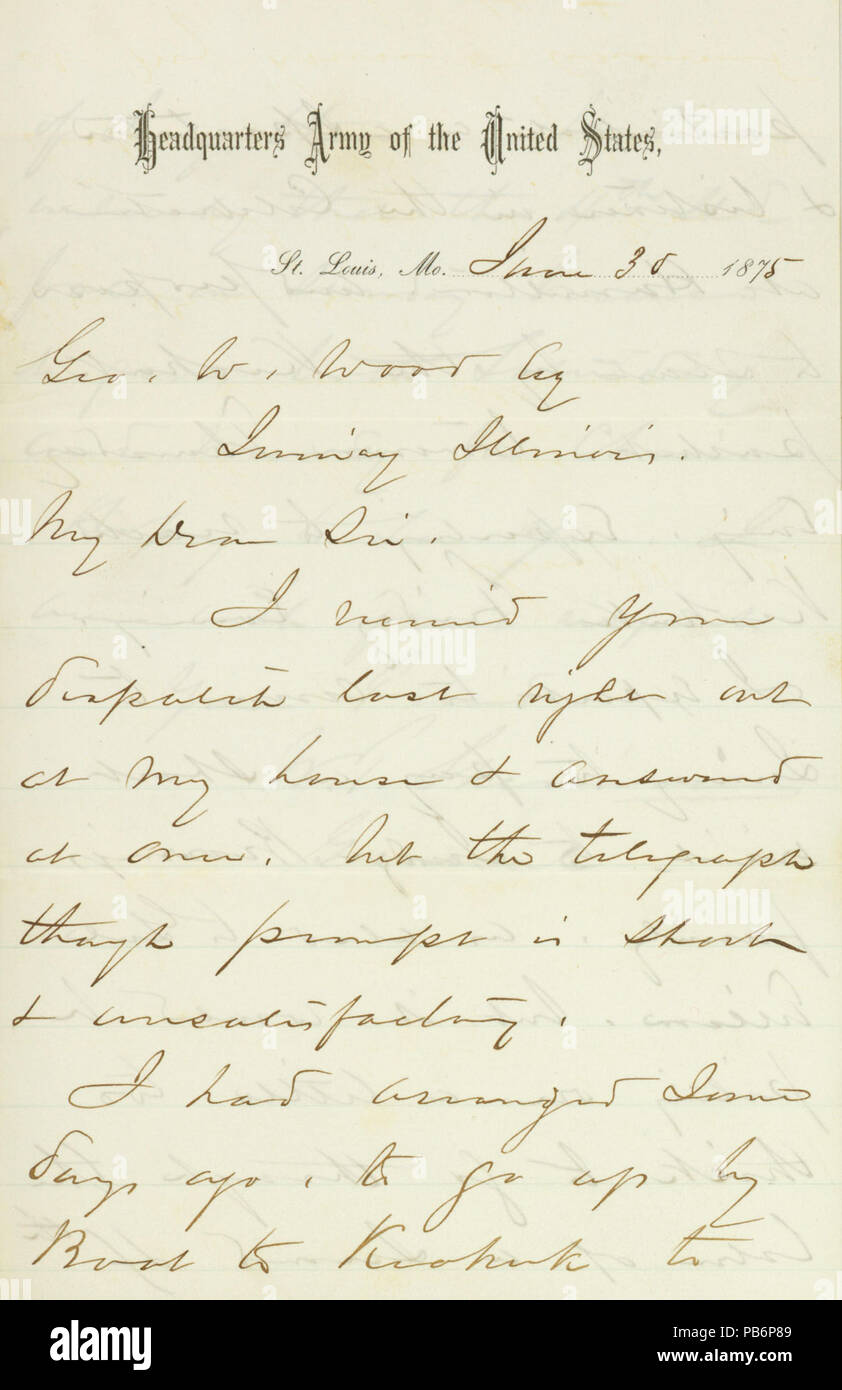 Headquarters Army of the United States,
St. Louis, Mo. June 30 1875
Geo. W. Wood Esq
Illinois.
My Dear Sir.
I received your
dispatch last night out
at my house & answered
at once, but the telegraph
though prompt is short
& unsatisfactory.
I had arranged some
days ago, to go up by
Boat to Keokuk to
alamy
Image ID: PB6P89
www.alamy.com